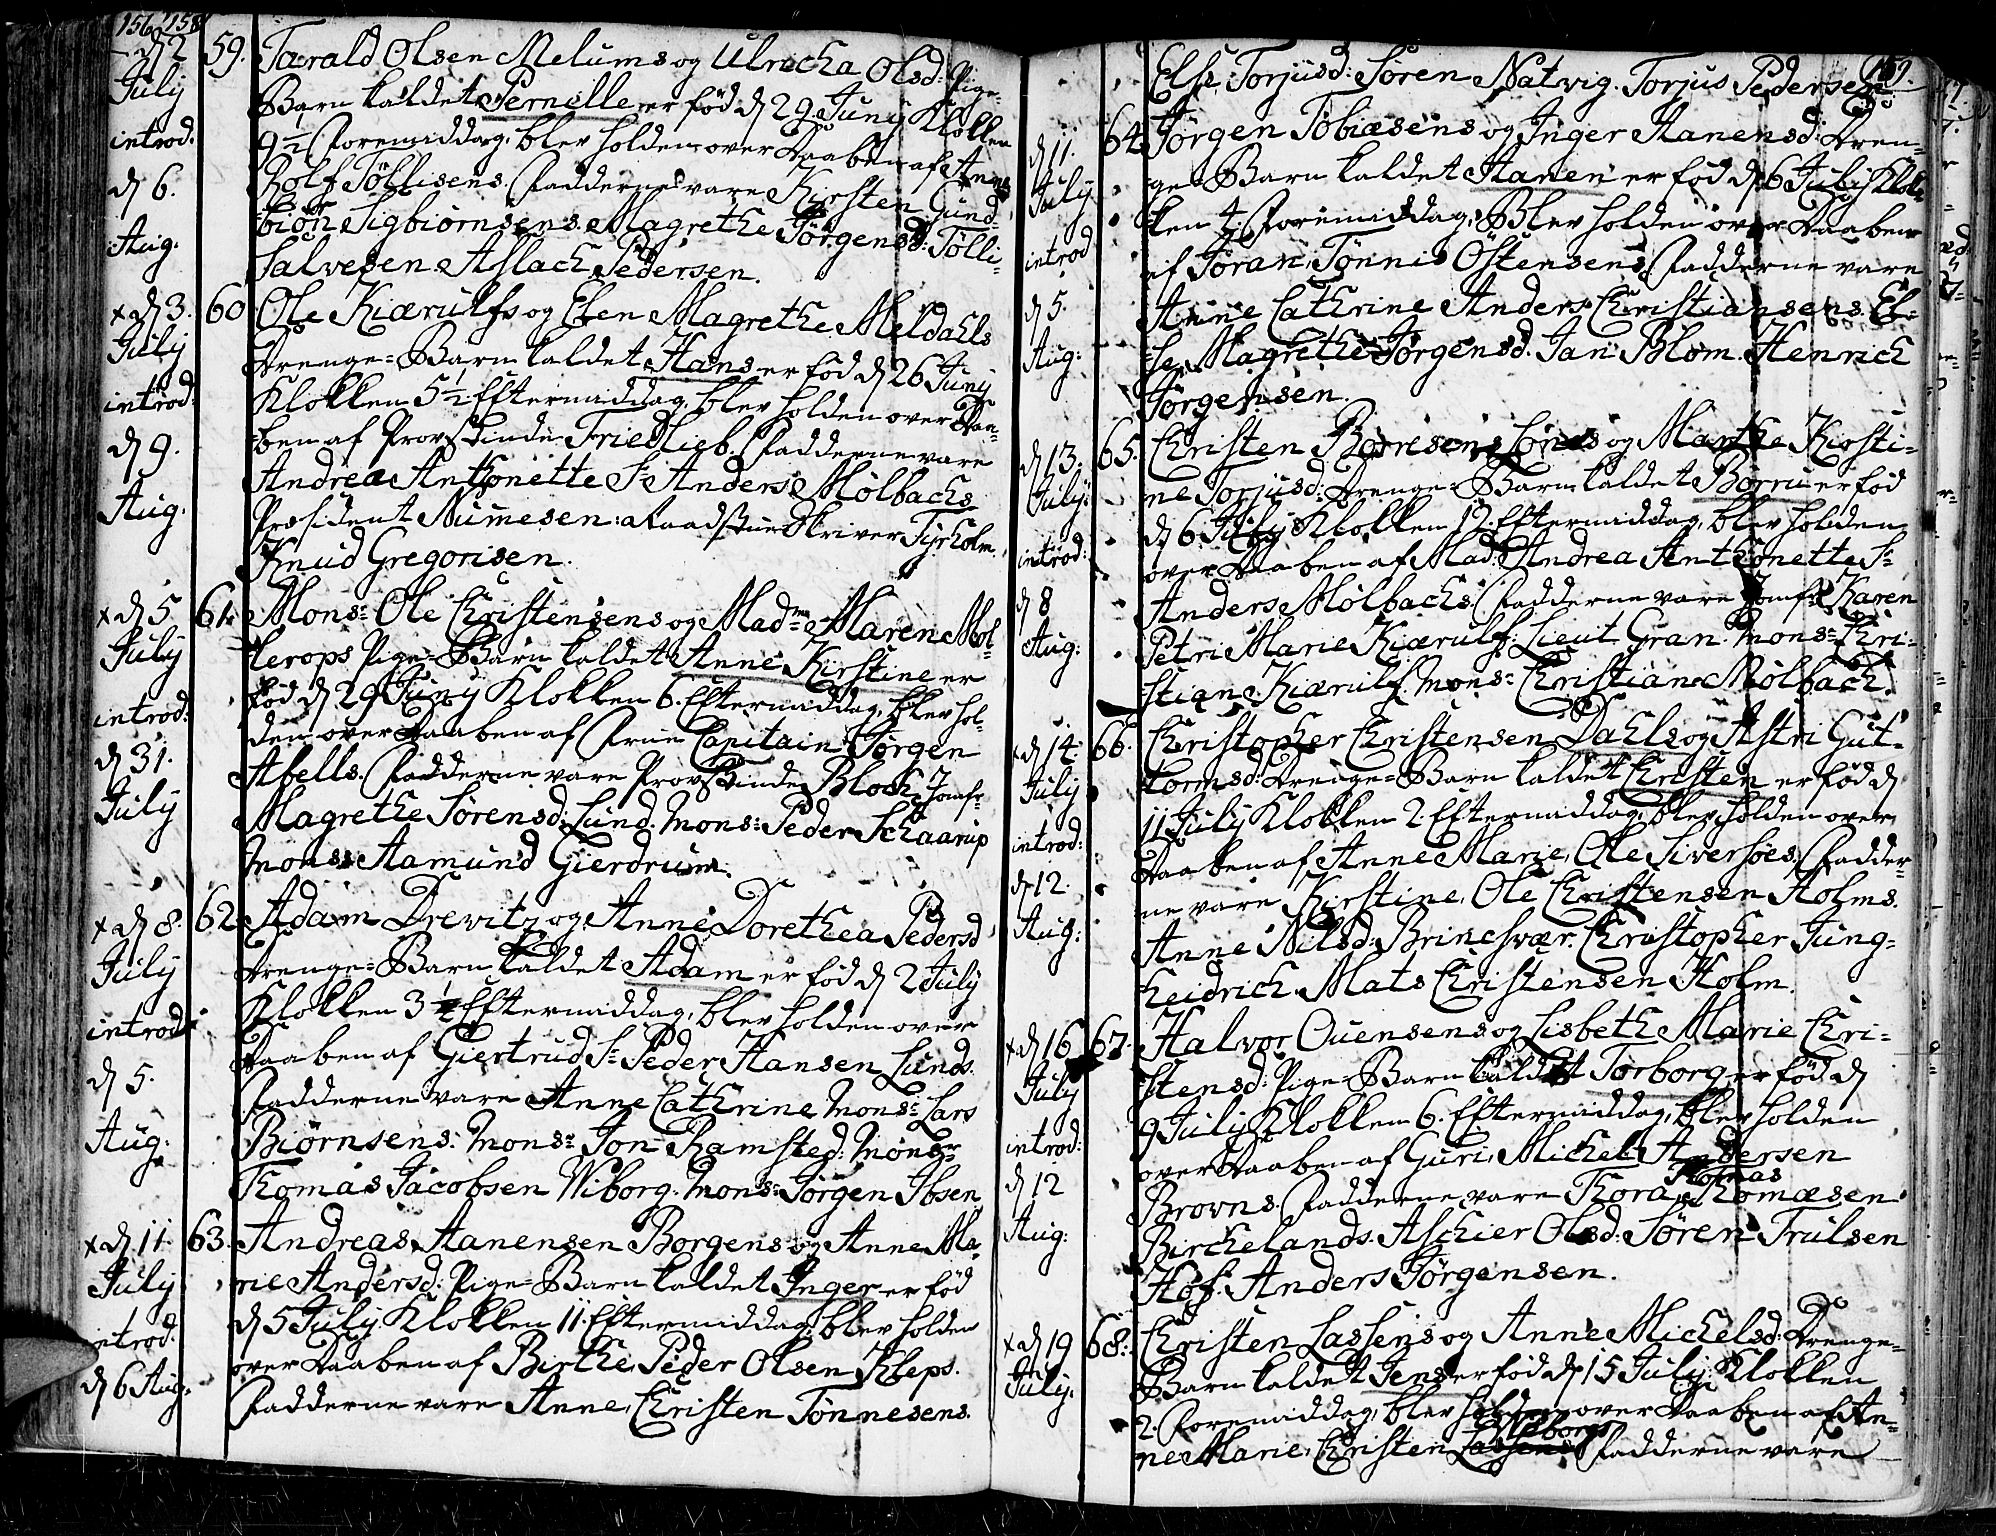 156 158
d 2 July introd: d 6. Aug:
59. Tarald Olsen Melums og Ulricha Olsd: Pige-
Barn kaldet Pernelle er fød d 29 Juny Klokken
9½ Formiddag, blev holden over Daaben af Anne
Rolf Tøllisens. Fadderne vare Kirsten Gund-
biør Sigbiørnsens. Magrethe Jørgensd: Tølli-
Salvesen Aslach Pedersen.
x d 3. July introd: d 9. Aug.
60 Ole Kiærulfs og Elen Magrethe Meldahls
Drenge-Barn kaldet Hans er fød d 26 Juny
Klokken 5½ Eftermiddag, blev holden over Daa-
ben af Provstinde Friedlieb. Fadderne vare
Andrea Anthonette S: Anders Mølbachs
Præsident Numesen: Raadstue Skriver Tyrholm
Knud Gregorisen.
x d 5 July introd: d 31. July
61. Mons: Ole Christensens og Madme Maren Mol-
terops Pige-Barn kaldet Anne Kirstine er
fød d 29 Juny Klokken 6. Eftermiddag, blev hol-
den over Daaben af Frue Capitain Jørgen
Abells. Fadderne vare Provstinde Bloch. Jomfr:
Magrethe Sørensd: Lund. Mons: Peder Schaarup
Mons: Aamund Gierdrum.
x d 8. July introd: d 5. Aug:
62. Adam Drevitz og Anne Dorethea Pedersd
Drenge-Barn kaldet Adam er fød d 2 July
Klokken 3½ Eftermiddag, blev holden over
Daaben af Giertrud S: Peder Hansen Lunds.
Fadderne vare Anne Cathrine Mons: Lars
Biørnsens: Mons: Jon Ramsted: Mons:
Thomas Jacobsen Wiborg. Mons: Jørgen Ibsen
x d 11 July introd: d 6 Aug.
63. Andreas Aanensen Borgens og Anne Ma-
rie Andersd: Pige-Barn kaldet Inger er fød
d 5 July. Klokken 11. Eftermiddag, blev holden
over Daaben af Birthe, Peder Olsen Kleps.
Fadderne vare Anne, Christen Tønnesens.
159.
Else Torjusd: Søren Natvig. Torjus Pedersen
d 11. July introd d 5. Aug:
64. Jørgen Tobiæsens og Inger Aanensd: Dren-
ge-Barn kaldet Aanen er fød d 6 July Klok-
ken 4. Formiddag, Blev holden over Daaben
af Joran, Tønnis Østensens. Fadderne vare
Anne Cathrine Anders Christiansens. El-
se Magrethe Jørgensd. Jan Blom. Henrich
Jørgensen.
d 13. July: introd: d 8 Aug:
65. Christen Børresens Lønes og Marthe Kirsti-
ne Torjusd: Drenge-Barn kaldet Børru er fød
d 6 July Klokken 12. Eftermiddag, blev holden
over Daaben af Mad: Andrea Anthonette S:
Anders Mølbachs. Fadderne vare Jomfr. Karen
Petri Marie Kiærulf. Lieut Gran. Mons: Kri-
stian Kiærulf. Mons: Christian Mølbach.
x d 14. July introd: d 12. Aug:
66. Christopher Christensen Dahls og Astri Gut-
tormsd: Drenge-Barn kaldet Christen er fød d
11 July Klokken 2. Eftermiddag, blev holden over
Daaben af Anne Marie, Ole Siversøes. Fadder-
ne vare Kirstine, Ole Christensen Holms.
Anne Nilsd: Brinchvær. Christopher Jung-
heidrich. Mats Christensen Holm.
x d 16 July introd: d 12 Aug:
67. Halvor Ouensens og Lisbeth Marie Chri-
stensd: Pige-Barn kaldet Torborg er fød d
9 July Klokken 6. Eftermiddag, blev holden
over Daaben af Guri, Michel Andersen
Brovns. Fadderne vare Thora, Thomas Thomæsen
Birchelands. Aschier Olsd: Søren Trulsen
Høf. Anders Jørgensen.
x d 19 July:
68. Christen Lassens og Anne Michelsd: Drenge-
Barn kaldet Jens er fød d 15 July. Klokken
2. Formiddag, blev holden over Daaben af An-
ne Marie, Christen Lassens Wiborgs Fadderne vare